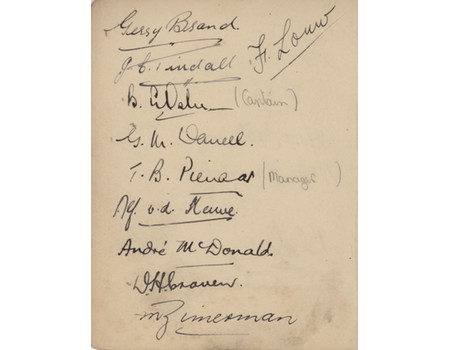 Gerry Brand.
J C Tindall F. Louw
B. (Captain)
G. M. Daneel.
T. B. Pienaar (Manager)
v. d. Merwe.
André McDonald.
D. H. Craven.
M Zimerman